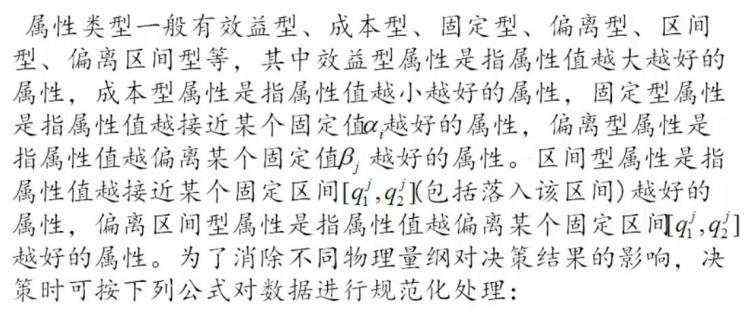 属性类型一般有效益型、成本型、固定型、偏离型、区间
型、偏离区间型等，其中效益型属性是指属性值越大越好的
属性，成本型属性是指属性值越小越好的属性，固定型属性
是指属性值越接近某个固定值αᵢ越好的属性，偏离型属性是
指属性值越偏离某个固定值βⱼ越好的属性。区间型属性是指
属性值越接近某个固定区间[q₁ʲ,q₂ʲ](包括落入该区间)越好的
属性，偏离区间型属性是指属性值越偏离某个固定区间[q₁ʲ,q₂ʲ]
越好的属性。为了消除不同物理量纲对决策结果的影响，决
策时可按下列公式对数据进行规范化处理：